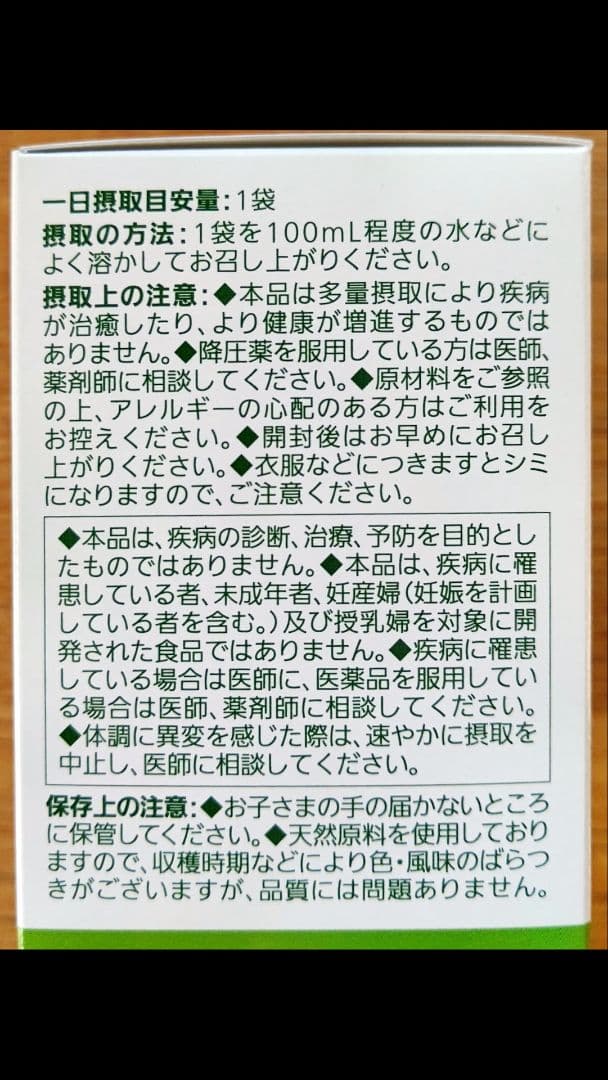 一日摂取目安量:1袋
摂取の方法:1袋を100mL程度の水などに
よく溶かしてお召し上がりください。
摂取上の注意:◆本品は多量摂取により疾病
が治癒したり、より健康が増進するものでは
ありません。◆降圧薬を服用している方は医師、
薬剤師に相談してください。◆原材料をご参照
の上、アレルギーの心配のある方はご利用を
お控えください。◆開封後はお早めにお召し
上がりください。◆衣服などにつきますとシミ
になりますので、ご注意ください。
◆本品は、疾病の診断、治療、予防を目的とし
たものではありません。◆本品は、疾病に罹
患している者、未成年者、妊産婦(妊娠を計画
している者を含む。)及び授乳婦を対象に開
発された食品ではありません。◆疾病に罹患
している場合は医師に、医薬品を服用してい
る場合は医師、薬剤師に相談してください。
◆体調に異変を感じた際は、速やかに摂取を
中止し、医師に相談してください。
保存上の注意:◆お子さまの手の届かないところ
に保管してください。◆天然原料を使用しており
ますので、収穫時期などにより色・風味のばらつ
きがございますが、品質には問題ありません。